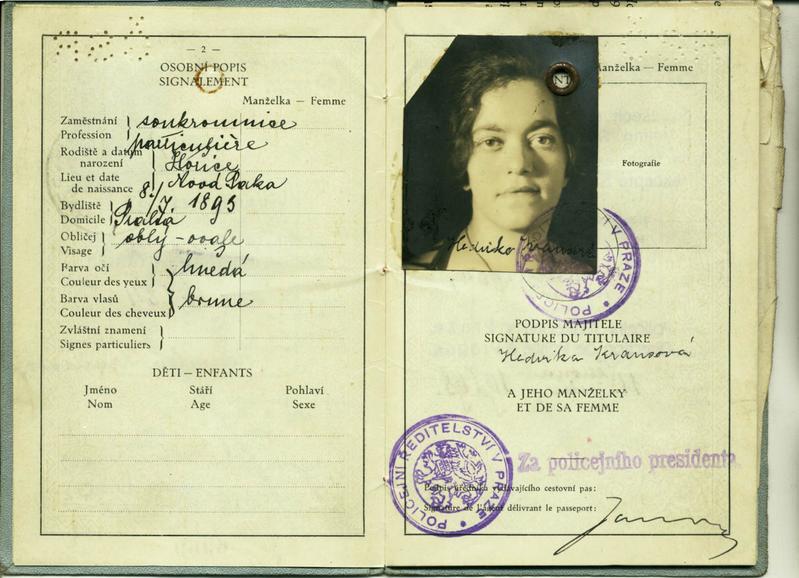 — 2 —
OSOBNÍ POPIS
SIGNALEMENT
Manželka — Femme
Zaměstnání soukromnice
Profession particulière
Rodiště a datum narození Hořice
Lieu et date de naissance 8./7. 1893
Bydliště
Domicile Praha
Obličej oblý - ovale
Visage
Barva očí hnedá
Couleur des yeux
Barva vlasů brune
Couleur des cheveux
Zvláštní znamení
Signes particuliers
DĚTI — ENFANTS
Jméno Stáří Pohlaví
Nom Age Sexe
Manželka — Femme
Fotografie
Hedvika Krausová
V PRAZE
POLICE
PODPIS MAJITELE
SIGNATURE DU TITULAIRE
Hedvika Krausová
A JEHO MANŽELKY
ET DE SA FEMME
POLICEJNÍ ŘEDITELSTVÍ V PRAZE
Za policejního presidenta
Podpis úředníka vydávajícího cestovní pas:
Signature de l'agent délivrant le passeport: